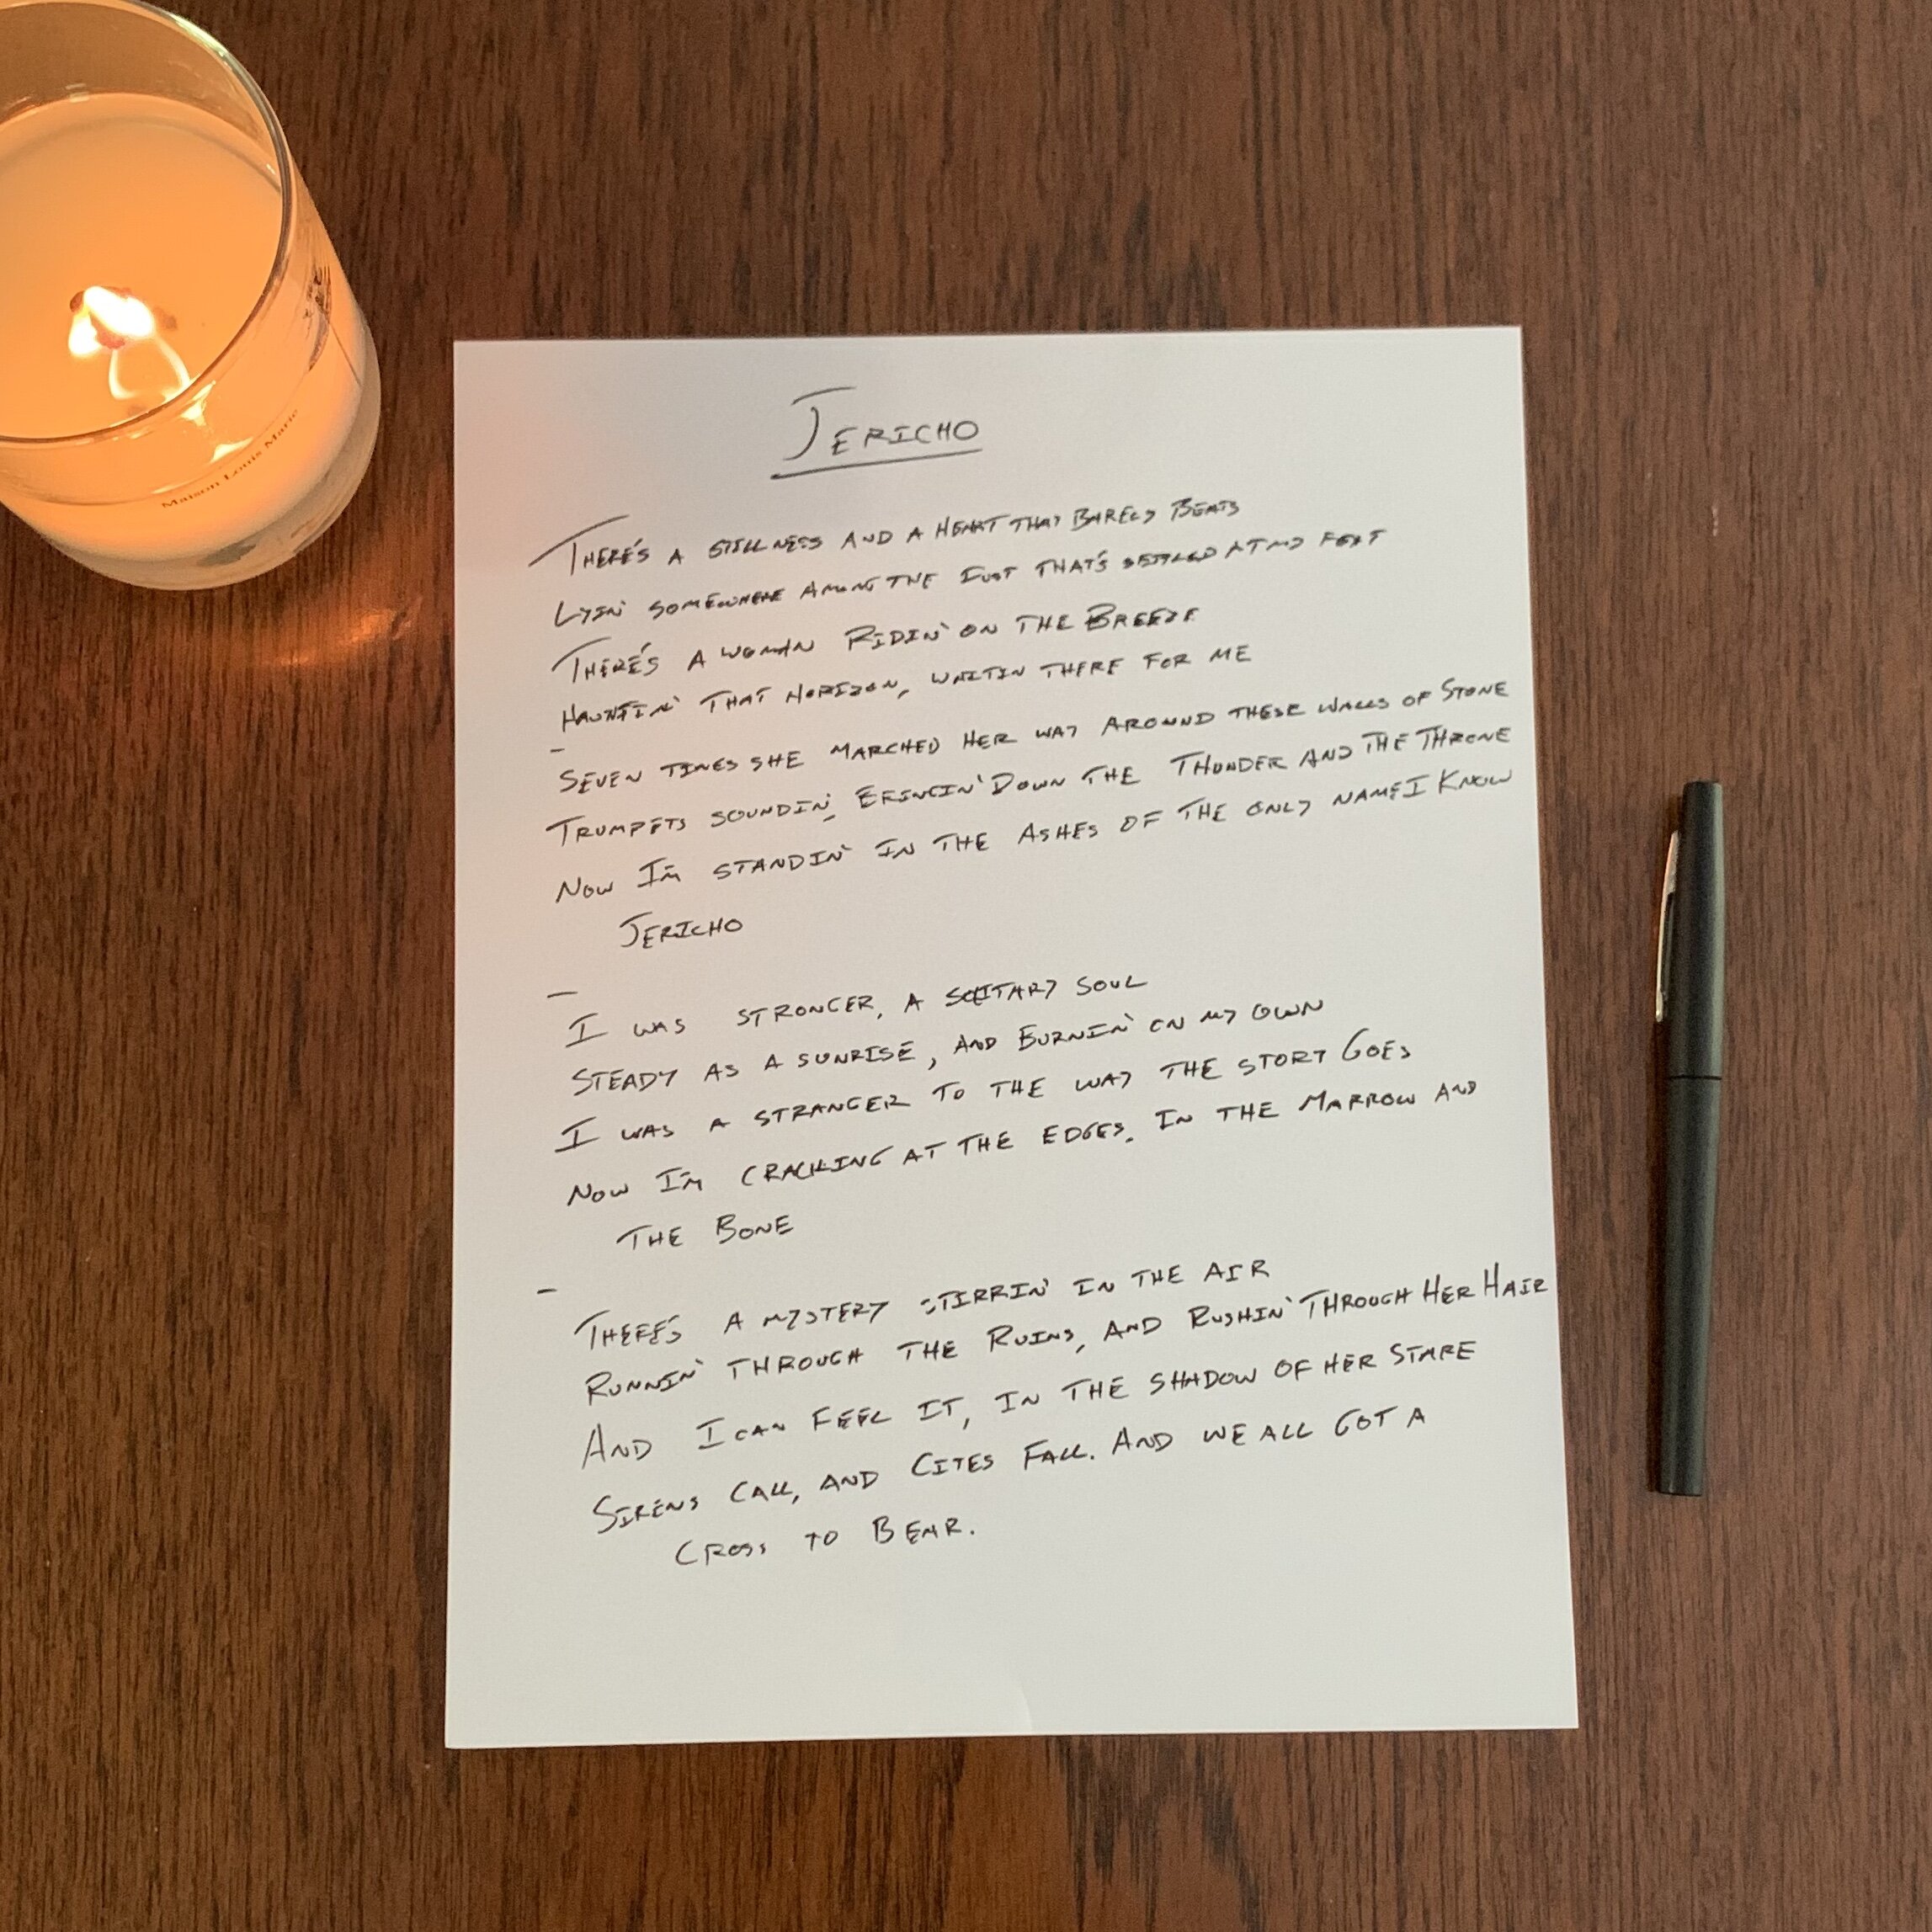 Maison Louis Marie
JERICHO
THERE'S A STILLNESS AND A HEART THAT BARELY BEATS
LYIN' SOMEWHERE AMONG THE DUST THAT'S SETTLED AT MY FEET
THERE'S A WOMAN RIDIN' ON THE BREEZE
HAUNTIN' THAT HORIZON, WAITIN THERE FOR ME
-
SEVEN TIMES SHE MARCHED HER WAY AROUND THESE WALLS OF STONE
TRUMPETS SOUNDIN', BRINGIN' DOWN THE THUNDER AND THE THRONE
NOW I'M STANDIN' IN THE ASHES OF THE ONLY NAME I KNOW
JERICHO
-
I WAS STRONGER, A SOLITARY SOUL
STEADY AS A SUNRISE, AND BURNIN' ON MY OWN
I WAS A STRANGER TO THE WAY THE STORY GOES
NOW I'M CRACKING AT THE EDGES, IN THE MARROW AND
THE BONE
-
THERE'S A MYSTERY STIRRIN' IN THE AIR
RUNNIN' THROUGH THE RUINS, AND RUSHIN' THROUGH HER HAIR
AND I CAN FEEL IT, IN THE SHADOW OF HER STARE
SIRENS CALL, AND CITES FALL. AND WE ALL GOT A
CROSS TO BEAR.